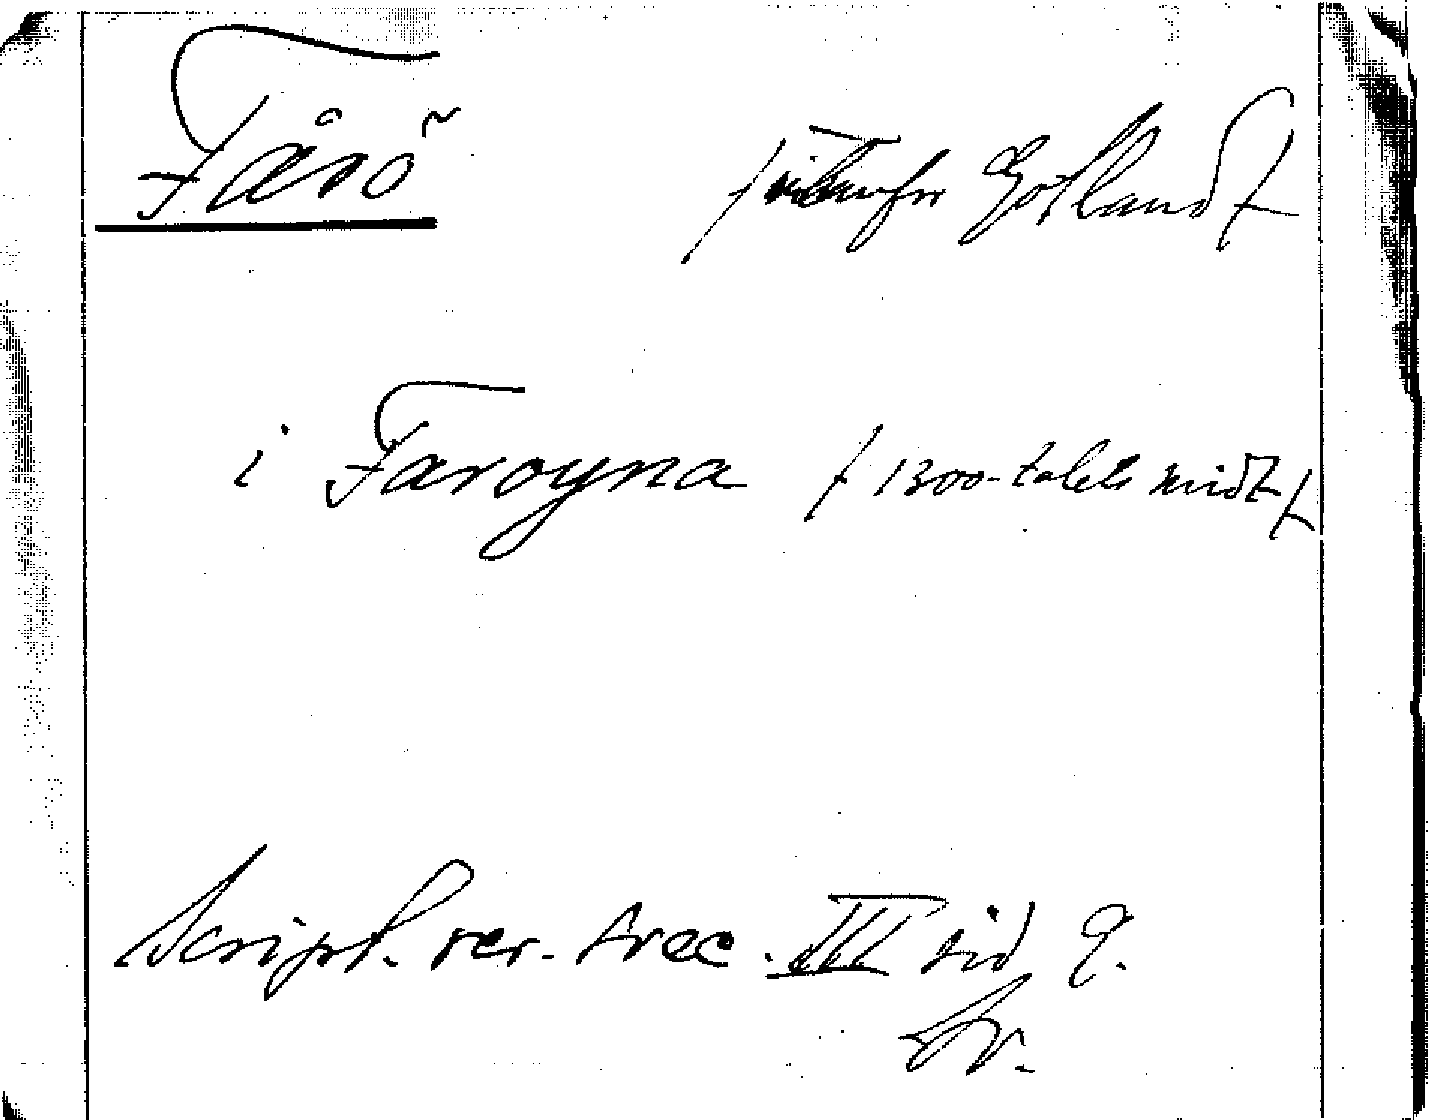 Fårö / utanför Gotland /
i Faroyna / 1300-talets midt /
Script. rer. svec. III sid 9.